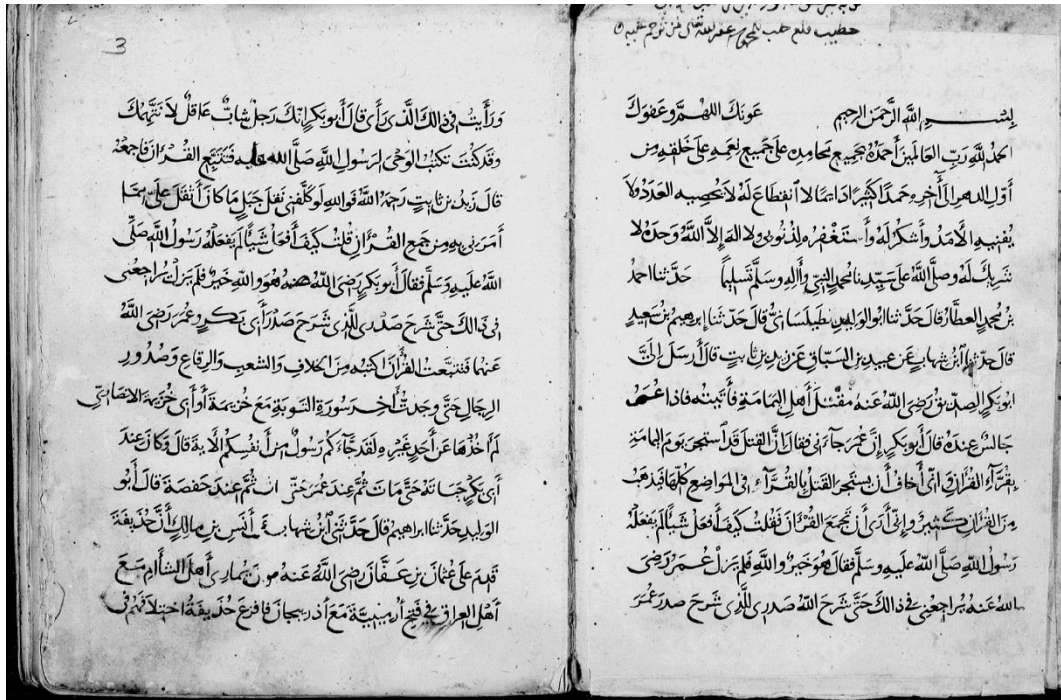 خطيب قلعة حلب المحروسة غفر الله تعالى لمن ترحم عليه
بسم الله الرحمن الرحيم عونك اللهم وعفوك
الحمد لله رب العالمين أحمده بجميع محامده على جميع نعمه على خلقه من
أول الدهر إلى آخره حمدا كثيرا دايما لا انقطاع له لا يحصيه العدد ولا
يفنيه الأمد وأشكر له وأستغفره لذنوبي ولا اله إلا الله وحده لا
شريك له وصلى الله على سيدنا محمد النبي وآله وسلم تسليما حدثنا احمد
بن محمد العطار قال حدثنا ابو الوليد قال حدثنا إبراهيم بن سعيد
قال حدثنا ابن شهاب عن عبيد بن السباق عن زيد بن ثابت قال أرسل إلي
ابو بكر الصديق رضي الله عنه مقتل أهل اليمامة فأتيته فاذا عمر
جالس عنده قال أبو بكر إن عمر جآءني فقال إن القتل قد استحر يوم اليمامة
بقرآء القرآن واني أخاف أن يستحر القتل بالقرآء في المواضع كلها فيذهب
من القرآن كثير وإني أرى أن تجمع القرآن فقلت كيف أفعل شيأ لم يفعله
رسول الله صلى الله عليه وسلم فقال هو خير والله فلم يزل عمر رضي
الله عنه يراجعني في ذالك حتى شرح الله صدري للذي شرح صدر عمر
3
ورأيت في ذالك الذي رأى قال أبو بكر إنك رجل شاب عاقل لا نتهمك
وقد كنت تكتب الوحي لرسول الله صلى الله عليه فتتبع القرآن فاجمعه
قال زيد بن ثابت رحمه الله فوالله لو كلفني نقل جبل ما كان أثقل علي مما
أمرني به من جمع القرآن قلت كيف أفعل شيأ لم يفعله رسول الله صلى
الله عليه وسلم فقال أبو بكر رضي الله عنه هو والله خير فلم يزل يراجعني
في ذالك حتى شرح صدري للذي شرح صدر أبي بكر وعمر رضي الله
عنهما فتتبعت القرآن أكتبه من اللخاف والشعب والرقاع وصدور
الرجال حتى وجدت آخر سورة التوبة مع خزيمة أو أبي خزيمة الانصاري
لم أخذها عن أحد غيره لقد جآءكم رسول من أنفسكم الآية قال وكان عند
أبي بكر حياته حتى مات ثم عند عمر حتى مات ثم عند حفصة قال أبو
الوليد حدثنا ابراهيم قال حدثني ابن شهاب عن أنس بن مالك أن حذيفة
قدم على عثمان بن عفان رضي الله عنه أهل الشأم مع
أهل العراق في فتح أرمينية مع أذربيجان فافزع حذيفة اختلافهم في